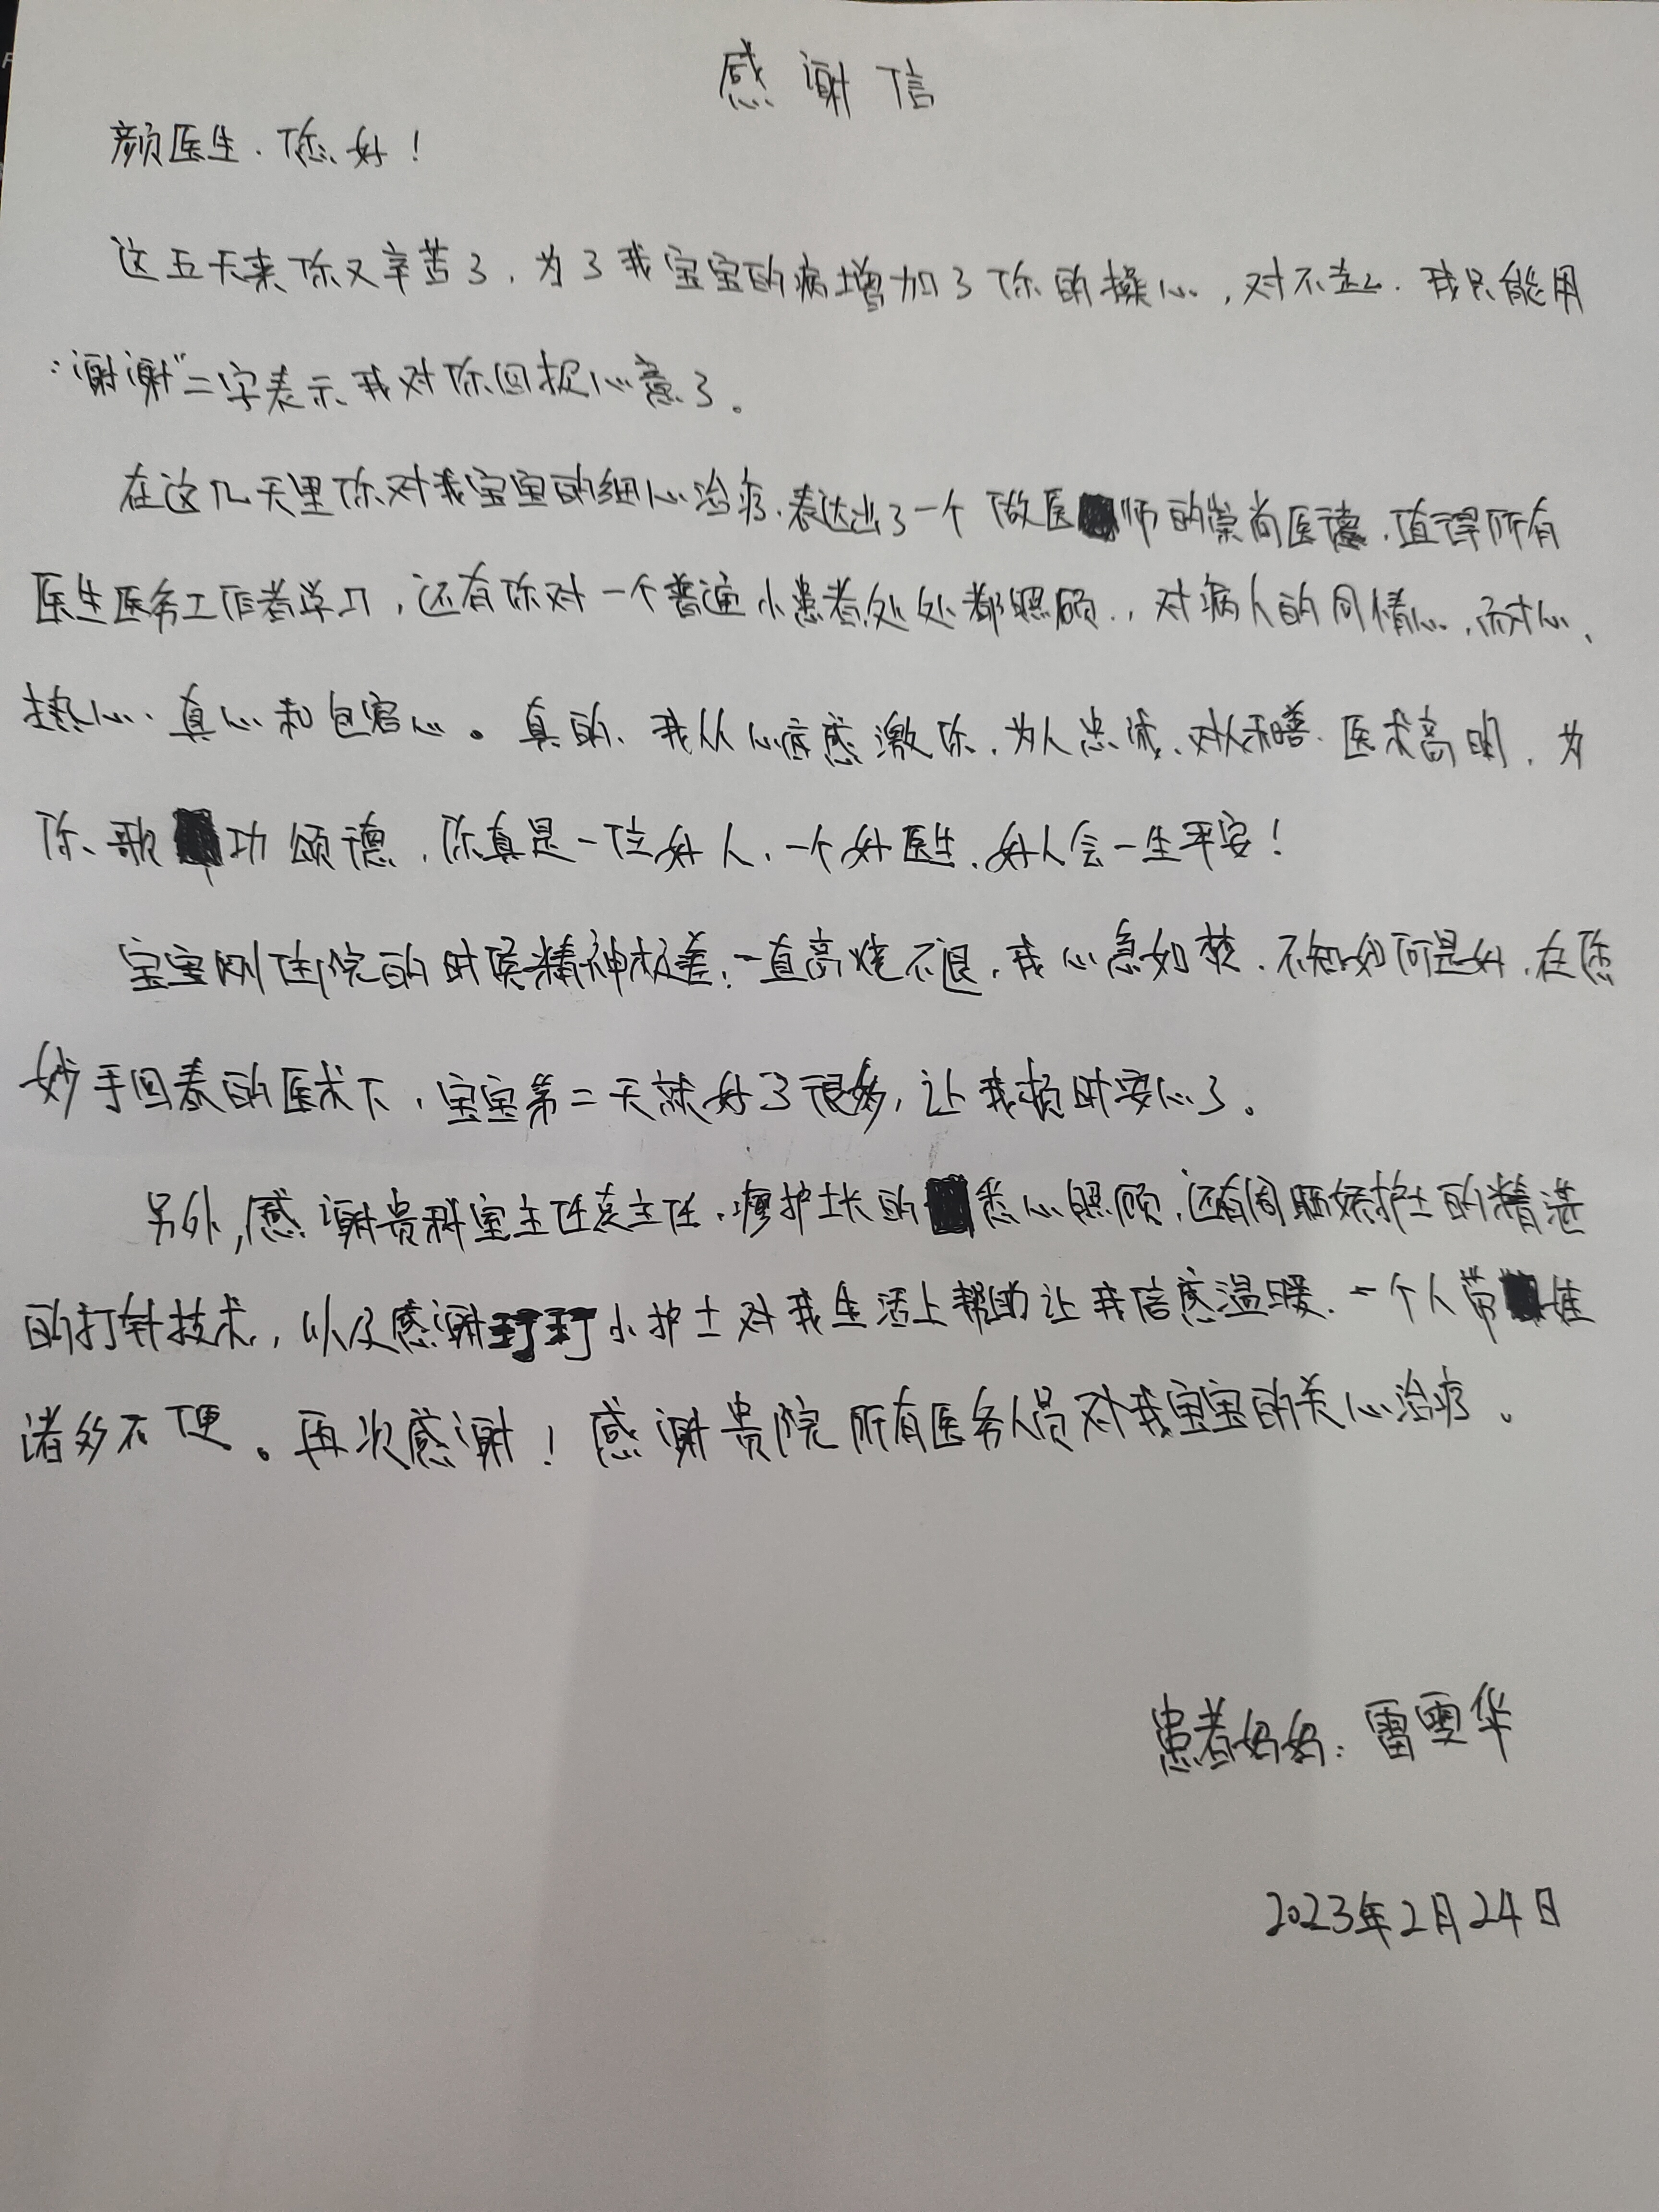 感谢信
颜医生.您好!
这五天来你又辛苦了,为了我宝宝的病增加了你的操心,对不起.我只能用
“谢谢”二字表示我对你回报心意了。
在这几天里你对我宝宝的细心治疗.表达出了一个做医师的崇尚医德.值得所有
医生医务工作者学习,还有你对一个普通小患者处处都照顾.,对病人的同情心.耐心、
热心、真心和包容心。真的、我从心底感激你.为人忠诚、对人和善.医术高明.为
你歌功颂德.你真是一位好人.一个好医生.好人会一生平安!
宝宝刚住院的时候精神极差,一直高烧不退,我心急如焚.不知如何是好.在您
妙手回春的医术下,宝宝第二天就好了很多,让我顿时安心了。
另外,感谢贵科室主任主任.护士长的悉心照顾,还有周护士的精湛
的打针技术,以及感谢小护士对我生活上帮助让我倍感温暖.一个人带娃
诸多不便。再次感谢!感谢贵院所有医务人员对我宝宝的关心治疗。
患者妈妈:雷雯华
2023年2月24日